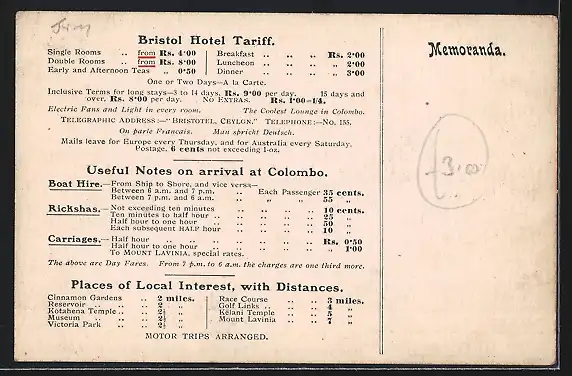 Bristol Hotel Tariff.
Single Rooms .. from Rs. 4·00
Double Rooms .. from Rs. 8·00
Early and Afternoon Teas „ 0·50
Breakfast .. „ „ Rs. 2·00
Luncheon .. „ „ „ 2·00
Dinner .. „ „ „ 3·00
One or Two Days—A la Carte.
Inclusive Terms for long stays—3 to 14 days, Rs. 9·00 per day. 15 days and
over, Rs. 8·00 per day. No Extras. Rs. 1·00=1/4.
Electric Fans and Light in every room. The Coolest Lounge in Colombo.
Telegraphic Address:—"Bristotel, Ceylon." Telephone:—No. 155.
On parle Francais. Man spricht Deutsch.
Mails leave for Europe every Thursday, and for Australia every Saturday.
Postage, 6 cents not exceeding 1-oz.
Useful Notes on arrival at Colombo.
Boat Hire.—From Ship to Shore, and vice versa—
Between 6 a.m. and 7 p.m. .. Each Passenger 35 cents.
Between 7 p.m. and 6 a.m. .. „ „ 55 „
Rickshas.—Not exceeding ten minutes .. .. .. .. 10 cents.
Ten minutes to half hour .. .. .. .. .. 25 „
Half hour to one hour .. .. .. .. .. 50 „
Each subsequent HALF hour .. .. .. .. 10 „
Carriages.—Half hour .. .. .. .. .. .. Rs. 0·50
Half hour to one hour .. .. .. .. .. „ 1·00
To Mount Lavinia, special rates.
The above are Day Fares. From 7 p.m. to 6 a.m. the charges are one third more.
Places of Local Interest, with Distances.
Cinnamon Gardens .. 2 miles.
Reservoir .. .. .. 2 „
Kotahena Temple .. .. 2½ „
Museum .. .. .. 2½ „
Victoria Park .. .. 2½ „
Race Course .. .. 3 miles.
Golf Links .. .. .. 4 „
Kelani Temple .. .. 5 „
Mount Lavinia .. .. 7 „
MOTOR TRIPS ARRANGED.
Memoranda.